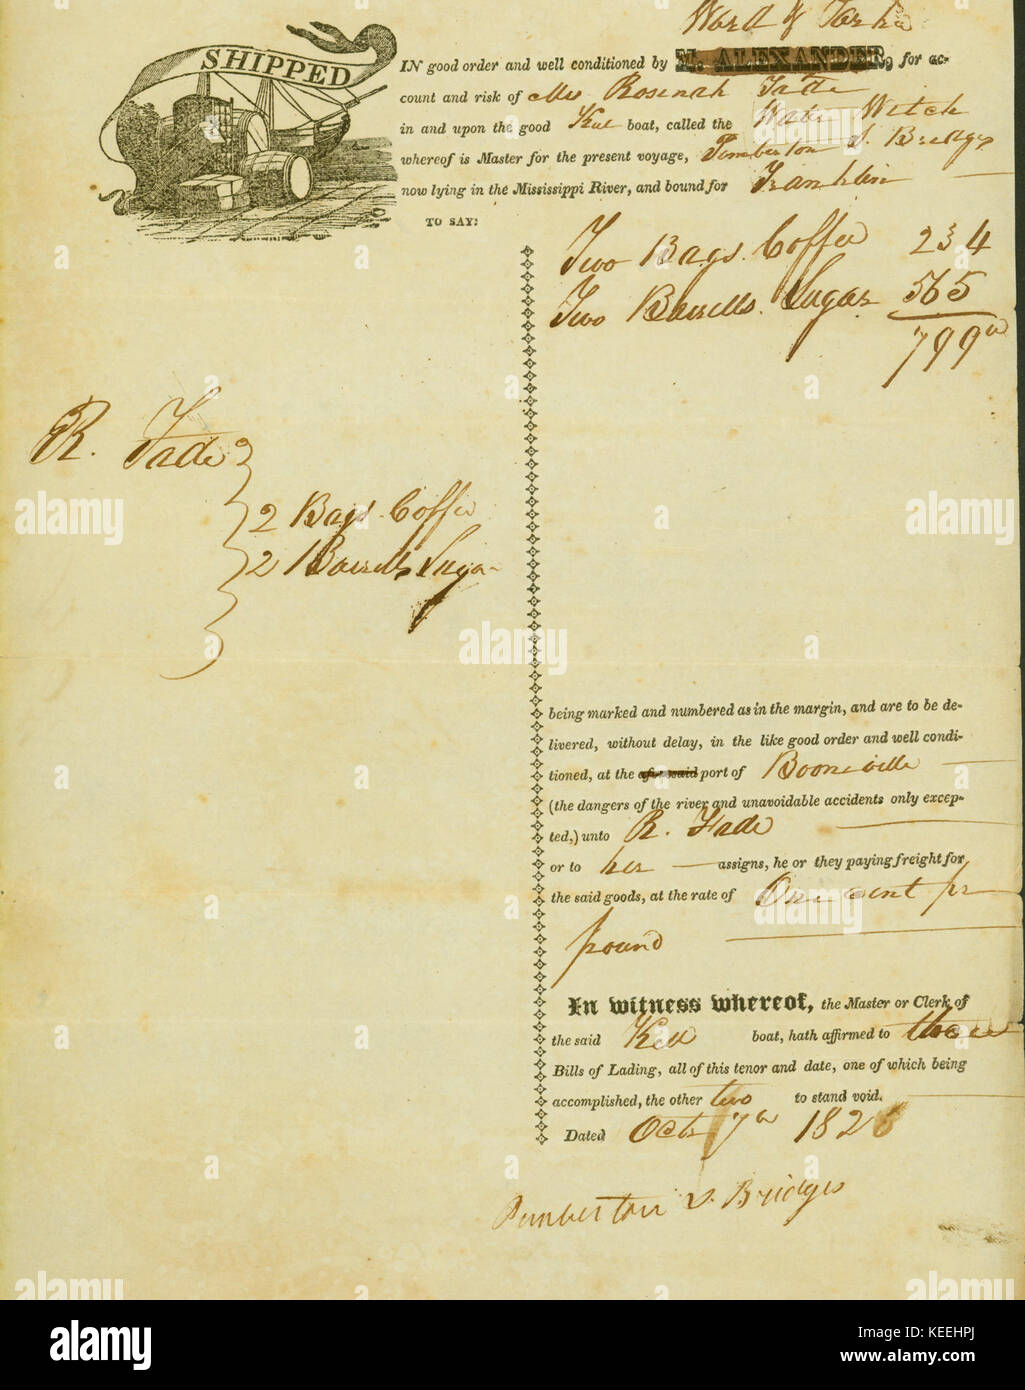 SHIPPED
Ward &
IN good order and well conditioned by M. ALEXANDER, for ac-
count and risk of Mrs Rosenah
in and upon the good Keel boat, called the Water Witch
whereof is Master for the present voyage, Pemberton S. Bridges
now lying in the Mississippi River, and bound for Franklin
TO SAY:
Two Bags. Coffee 234
Two Barrells. Sugar 565
799
R. Fade
2 Bags Coffee
2 Barrells Sugar
being marked and numbered as in the margin, and are to be de-
livered, without delay, in the like good order and well condi-
tioned, at the afore said port of Booneville
(the dangers of the river and unavoidable accidents only excep-
ted,) unto R. Fade
or to her assigns, he or they paying freight for
the said goods, at the rate of One cent pr
pound
In witness whereof, the Master or Clerk of
the said Keel boat, hath affirmed to three
Bills of Lading, all of this tenor and date, one of which being
accomplished, the other two to stand void.
Dated Octr 7th 1826
Pemberton S. Bridges
alamy
a
alamy
Image ID: KEEHPJ
www.alamy.com